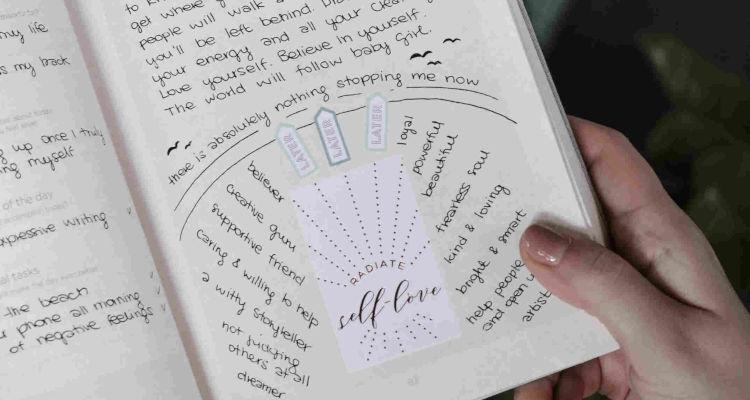 my life
my back
up once I truly
ing myself
of the day
expressive writing
tasks
the beach
phone all morning
of negative feelings
get where
people will walk
you'll be left behind.
your energy and all your
Love yourself. Believe in yourself.
The world will follow baby girl.
there is absolutely nothing stopping me now
LATER
LATER
LATER
believer
creative guru
supportive friend
caring & willing to help
a witty storyteller
not judging
others at all
dreamer
RADIATE
self-love
loyal
powerful
beautiful
fearless soul
kind & loving
bright & smart
help people
and open u
artist